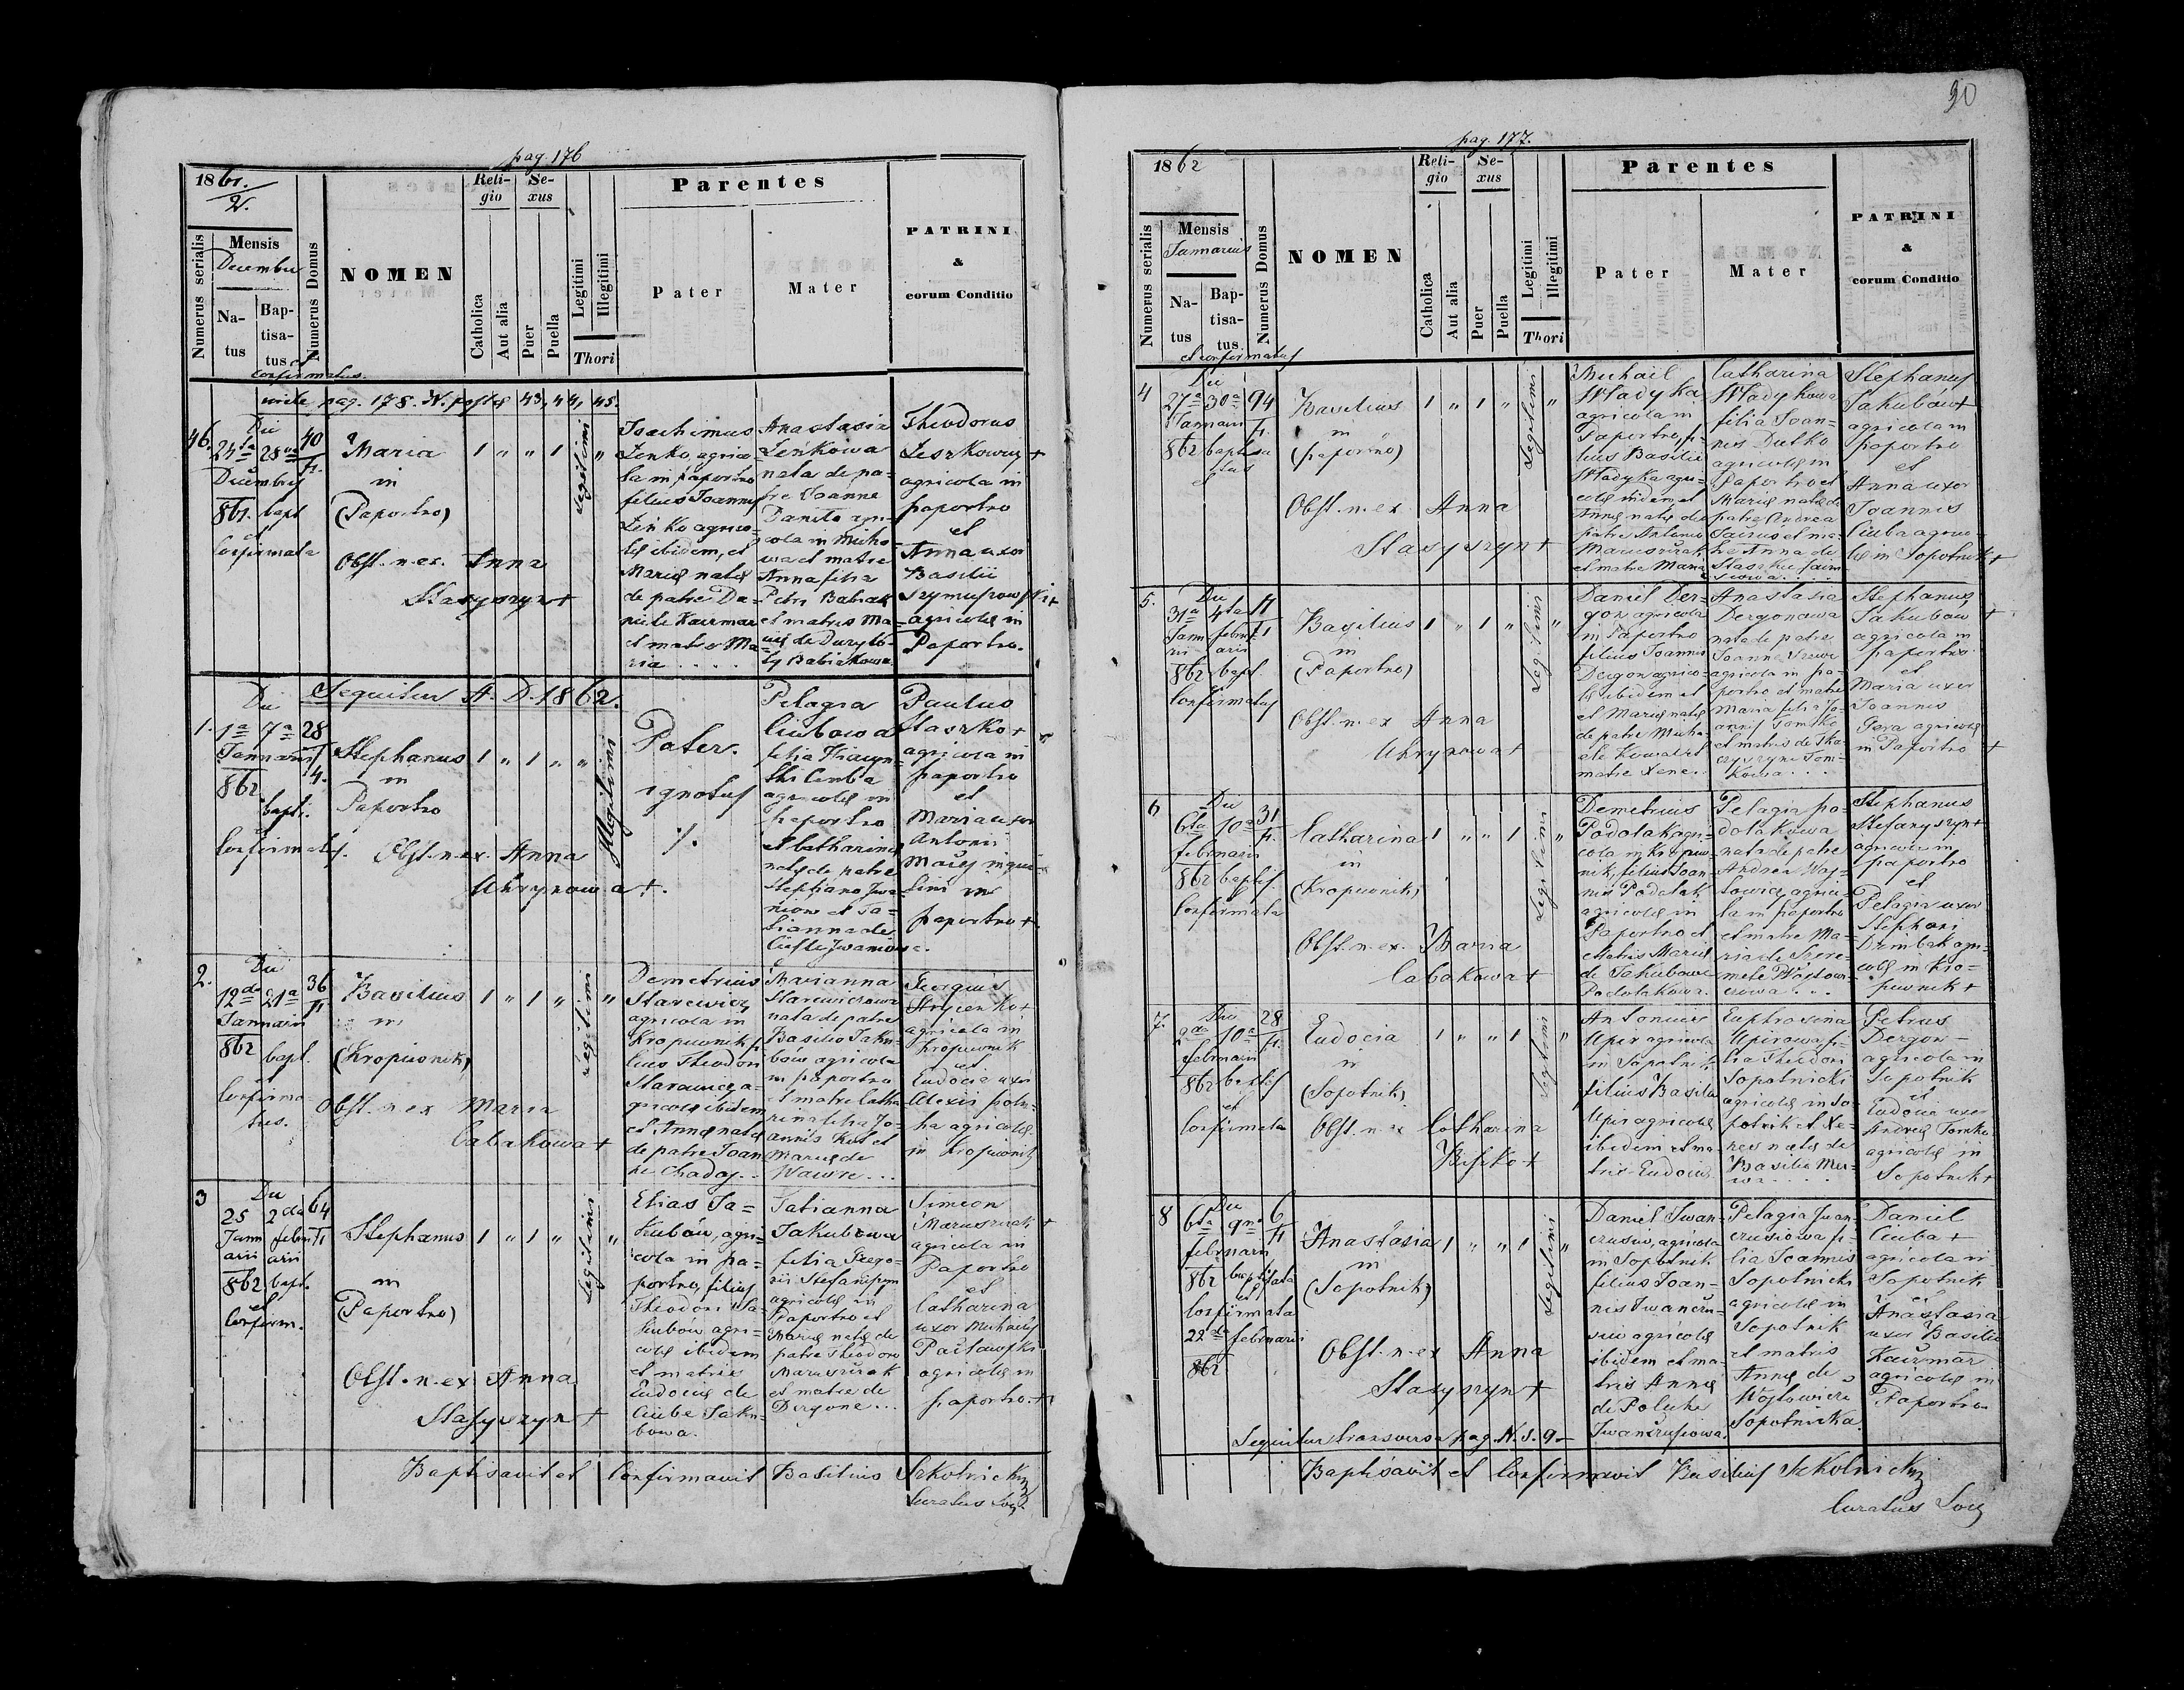 pag. 176
1861.
2.
Numerus serialis
Mensis
Decembri
Natus
Baptisatus
et
confirmatus.
Numerus Domus
NOMEN
Religio
Catholica
Aut alia
Sexus
Puer
Puella
Legitimi
Illegitimi
Thori
Parentes
Pater
Mater
PATRINI
&
eorum Conditio
vide pag. 178. N. postes 43, 44, 45.
46.
Die
24ta 28va
Decembris
861. bapt
et
Confirmata
40
Maria
in
(Paportno)
1 „ „ 1
Legitimi
„
Obst. n. ex. Anna
Stasyszyn +
Joachimus
Zenko, agrico=
la in paportno
filius Joannis
Zenko agrico=
lę ibidem, et
Marię natę
de patre Da=
niele Kaczmar
et matre Ma=
ria . . . .
Anastasia
Zeńkowa
nata de pa=
tre Joanne
agri=
cola in
et matre
Anna filia
Petri Babiak
et matris Ma=
rię de
Babiakowa
Theodorus
Leszkowicz +
agricola in
paportno
et
Anna uxor
Basilii
agricolę in
Paportno.
Sequitur A. D. 1862.
1.
Die
1a 7a
Januarii
862
bapti.
et
Confirmatus.
28
4.
Stephanus
in
Paportno
1 „ 1 „ „
Illegitimi
Obst. n. ex. Anna
Uhrynowa +.
Pater.
ignotus
%.
Pelagia
Ciubowa
filia
Ciuba
agricolę in
paportno
et Catharinę
natę de patre
Stephano Iwa=
niow et Ta=
tianna de
Iwaniowa.
Paulus
Staszko +
agricola in
paportno
et
Maria uxor
Antonii
inqui=
lini in
paportno +
2.
Die
12da 21a
Januarii
862
bapt.
et
Confirma=
tus.
36
Basilius
in
(Kropiwnik)
1 „ 1 „
Legitimi
„
Obst. n. ex Maria
Cabakowa +
Demetrius
Starewicz
agricola in
Kropiwnik fi=
lius Theodori
Starewicz a=
gricolę ibidem
et Annę natę
de patre Joan=
ne Chaday . .
Marianna
Starewiczowa
nata de patre
Basilio Jaku=
bów agricola
in paportno
et matre Catha=
rina filia Jo=
annis Kot et
Marię de
Wawre . . .
Georgius
agricola in
Kropiwnik
et
Eudocia uxor
Alexii
agricolę
in Kropiwnik
3
Die
25 2da
Janu febru
arii arii
862 bapt.
et
Confirm.
64
Stephanus
in
(Paportno)
1 „ 1 „
Legitimi
„
Obst. n. ex Anna
Stasyszyn +
Elias Ja=
kubów, agri=
cola in pa=
portno, filius
Theodori Ja=
kubów agri=
colę ibidem
et matris
Eudocię de
Ciube Jaku=
bowa.
Tatianna
Jakubowa
filia Grego=
rii
agricolę in
Paportno et
Marię natę de
patre Theodoro
Maruszczak
et matre de
Dergone . . .
Simeon
Maruszczak +
agricola in
Paportno
et
Catharina
uxor Michaelis
Pacławski
agricolę in
paportno. +
Baptisavit et Confirmavit Basilius Szkolnicky
Curatus Loci
90
pag. 177.
1862
Numerus serialis
Mensis
Januarius
Natus
Baptisatus.
et confirmatus
Numerus Domus
NOMEN
Religio
Catholica
Aut alia
Sexus
Puer
Puella
Legitimi
Illegitimi
Thori
Parentes
Pater
Mater
PATRINI
&
eorum Conditio
4
Die
27a 30a
Januarii
862 baptisa
tus
et
94
Basilius
in
(paportno)
1 „ 1 „
Legitimi
„
Obst. n. ex. Anna
Stasyszyn +
Michail
Władyka
agricola in
Paportno, fi=
lius Basilii
Władyka agri=
colę ibidem et
Annę natę de
patre Antonio
Maruszczak
et matre Maria
Catharina
Władykowa
filia Joan=
nis Dutko
agricolę in
Paportno et
Marię natę de
patre Andrea
et ma=
tre Anna de
Stephanus
Jakubów +
agricola in
paportno
et
Anna uxor
Joannis
Ciuba agrico=
lę in Sopotnik +
5.
Die
31a 4ta
Janua februarii
862 bapt.
Confirmatus
11
Basilius
in
(Paportno)
1 „ 1 „
Legitimi
„
Obst. n. ex Anna
Uhrynowa +
Daniel Der=
gon agricola
in Paportno
filius Joannis
Dergon agrico=
lę ibidem et
et Marię natę
de patre Micha=
ele Kowal et
matre Xene . .
Anastasia
Dergonowa
nata de patre
Joanne
agricola in pa=
portno et matre
Maria filia Jo=
annis Tomsko
et matris de
Stephanus
Jakubow +
agricola in
paportno
et
Maria uxor
Joannis
Gera agricolę
in Paportno +
6
Die
6ta 10a
februarii
862 baptis.
Confirmata
31
Catharina
in
(Kropiwnik)
1 „ „ 1
Legitimi
„
Obst. n. ex. Maria
Cabakowa +
Demetrius
Podolak agri=
cola in Kropiw=
nik, filius Joan=
nis Podolak
agricolę in
Paportno et
matris Marię
de Jakubowe
Podolakowa.
Pelagia po=
dolakowa
nata de patre
Andrea Woj=
towicz agrico=
la in paportno
et matre Ma=
ria de Szere=
mete Wojtow=
czowa . . .
Stephanus
Stefanyszyn +
agricola in
paportno
et
Pelagia uxor
Stephani
Drembak agri=
colę in Kro=
piwnik +
7.
Die
2da 10a
februarii
862 baptis
et
Confirmata
28
Eudocia
in
(Sopotnik)
1 „ „ 1
Legitimi
„
Obst. n. ex Catharina
Byszko +
Antonius
Upir agricola
in Sopotnik
filius Basilii
Upir agricolę
ibidem et ma=
tris Eudocię.
Euphrosina
Upirowa fi=
lia Theodori
Sopotnicki
agricolę in So=
potnik et Xe=
nię natę de
Basilio
Petrus
Dergon —
agricola in
Sopotnik
et
Eudocia uxor
Andreę Tomko
agricolę in
Sopotnik +
8
Die
6ta 9na
februarii
862 baptisata
et
Confirmata
22da februarii
862
6
Anastasia
in
(Sopotnik)
1 „ „ 1
Legitimi
„
Obst. n. ex Anna
Stasyszyn +
Daniel Iwan=
czusiw, agricola
in Sopotnik
filius Joan=
nis Iwanczu=
siw agricolę
ibidem et ma=
tris Annę
de Poluhe
Iwańczusiowa.
Pelagia Iwan=
czusiowa fi=
lia Joannis
Sopotnicki
agricolę in
Sopotnik
et matris
Annę de
Wojtowicze
Sopotnicka
Daniel
Ciuba +
agricola in
Sopotnik
et
Anastasia
uxor Basilii
Kaczmar
agricolę in
Paportno
Sequitur transversa pag. N. S. 9 —
Baptisavit et Confirmavit Basilius Szkolnicky
Curatus Loci